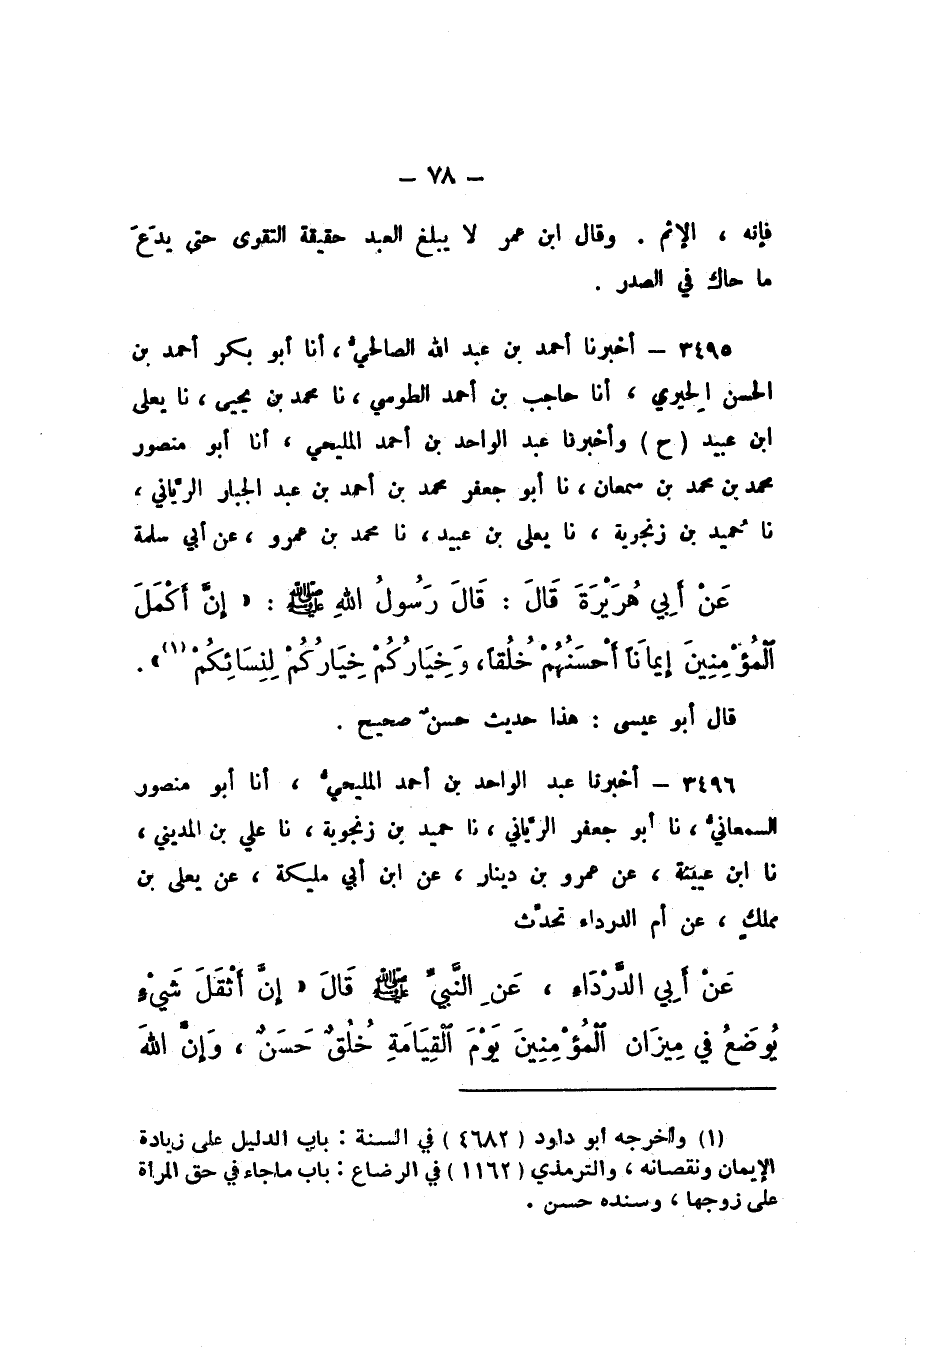 – ٧٨ –
فإنه ، الإثم . وقال ابن عمر لا يبلغ العبد حقيقة التقوى حتى يدَعَ
ما حاك في الصدر .
٣٤٩٥ – أخبرنا أحمد بن عبد الله الصالحيُّ ، أنا أبو بكر أحمد بن
الحسن الحِيري ، أنا حاجب بن أحمد الطوسي ، نا محمد بن يحيى ، نا يعلى
ابن عبيد ( ح ) وأخبرنا عبد الواحد بن أحمد المليحي ، أنا أبو منصور
محمد بن محمد بن سمعان ، نا أبو جعفر محمد بن أحمد بن عبد الجبار الريَّاني ،
نا حُميد بن زنجوية ، نا يعلى بن عبيد ، نا محمد بن عمرو ، عن أبي سلمة
عَنْ أَبِي هُرَيْرَةَ قَالَ : قَالَ رَسُولُ اللهِ ﷺ : « إنَّ أَكْمَلَ
ٱلْمُؤْمِنِينَ إيمَانَاً أَحْسَنُهُمْ خُلُقاً، وَخِيَارُكُمْ خِيَارُكُمْ لِنِسَائِكُمْ (١)» .
قال أبو عيسى : هذا حديث حسنٌ صحيح .
٣٤٩٦ – أخبرنا عبد الواحد بن أحمد المليحيُّ ، أنا أبو منصور
السمعانيُّ ، نا أبو جعفر الريَّاني ، نا حميد بن زنجوية ، نا علي بن المديني ،
نا ابن عيينة ، عن عمرو بن دينار ، عن ابن أبي مليكة ، عن يعلى بن
مملكٍ ، عن أم الدرداء تحدَّث
عَنْ أَبِي الدَّرْدَاءِ ، عَنِ النَّبِيِّ ﷺ قَالَ « إنَّ أَثْقَلَ شَيْءٍ
يُوضَعُ فِي مِيزَانِ ٱلْمُؤْمِنِينَ يَوْمَ ٱلْقِيَامَةِ خُلُقٌ حَسَنٌ ، وَإنَّ اللهَ
(١) وأخرجه أبو داود ( ٤٦٨٢ ) في السنة : باب الدليل على زيادة
الإيمان ونقصانه ، والترمذي ( ١١٦٢ ) في الرضاع : باب ماجاء في حق المرأة
على زوجها ، وسنده حسن .